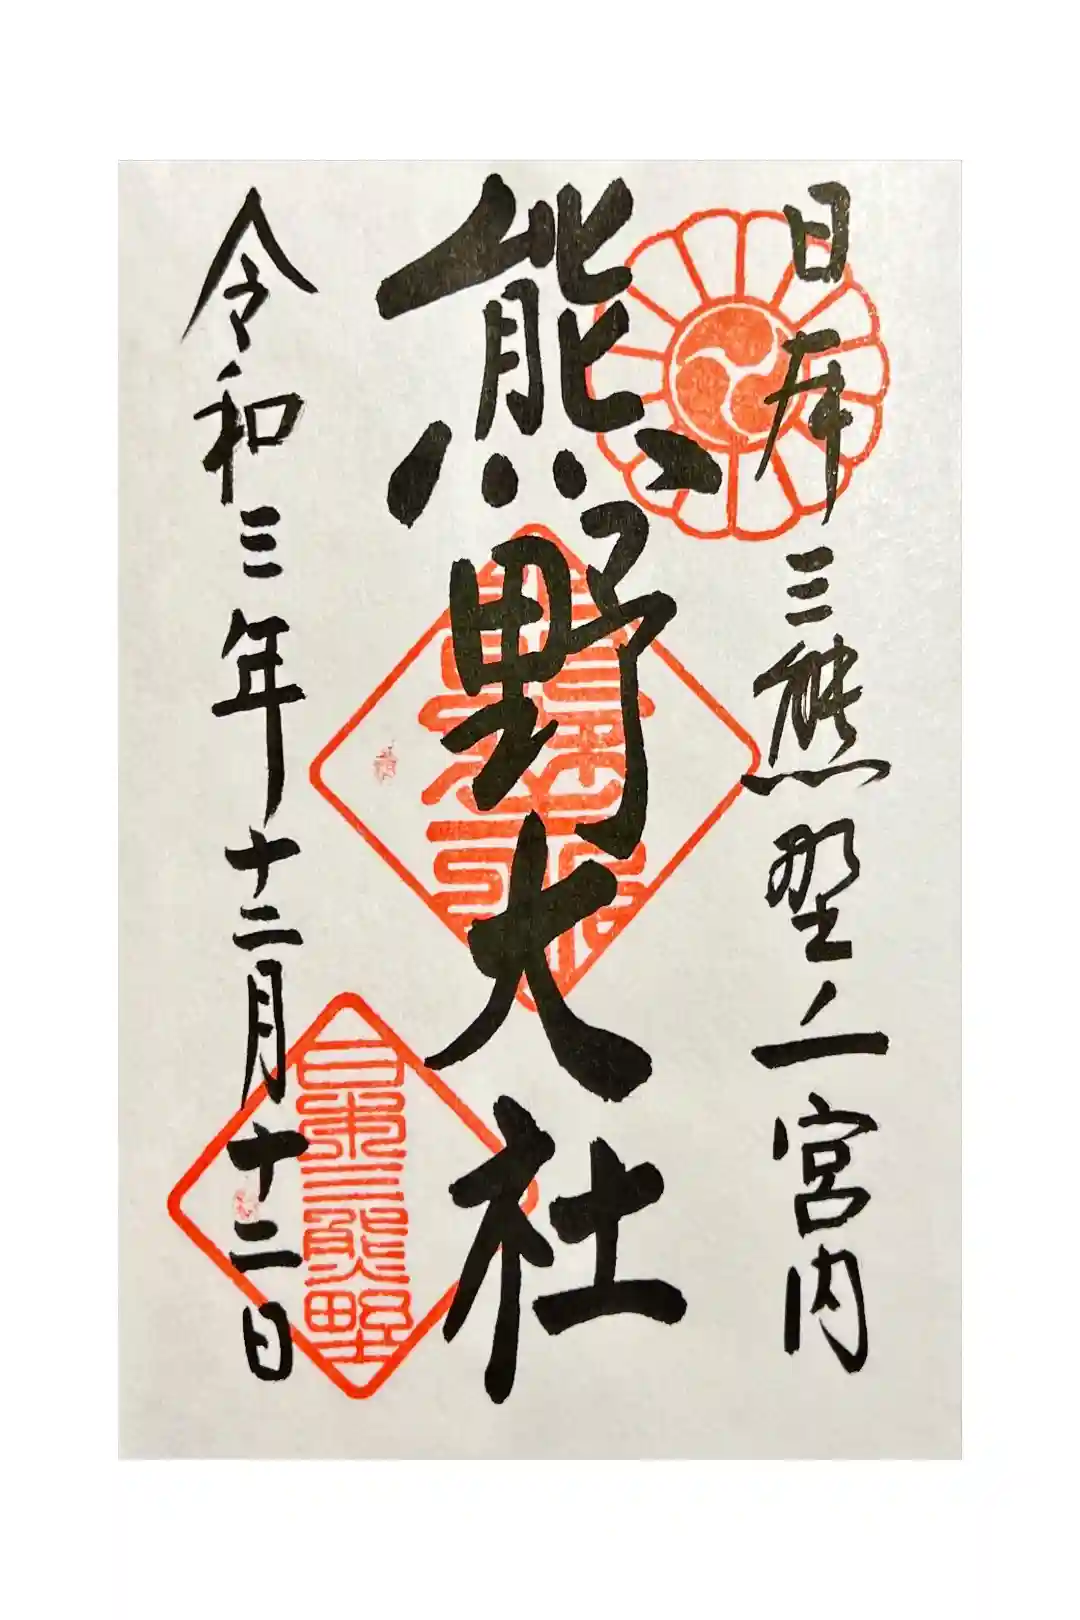 日本三熊野之一宮内
熊野大社
令和三年十二月十二日
日本三熊野